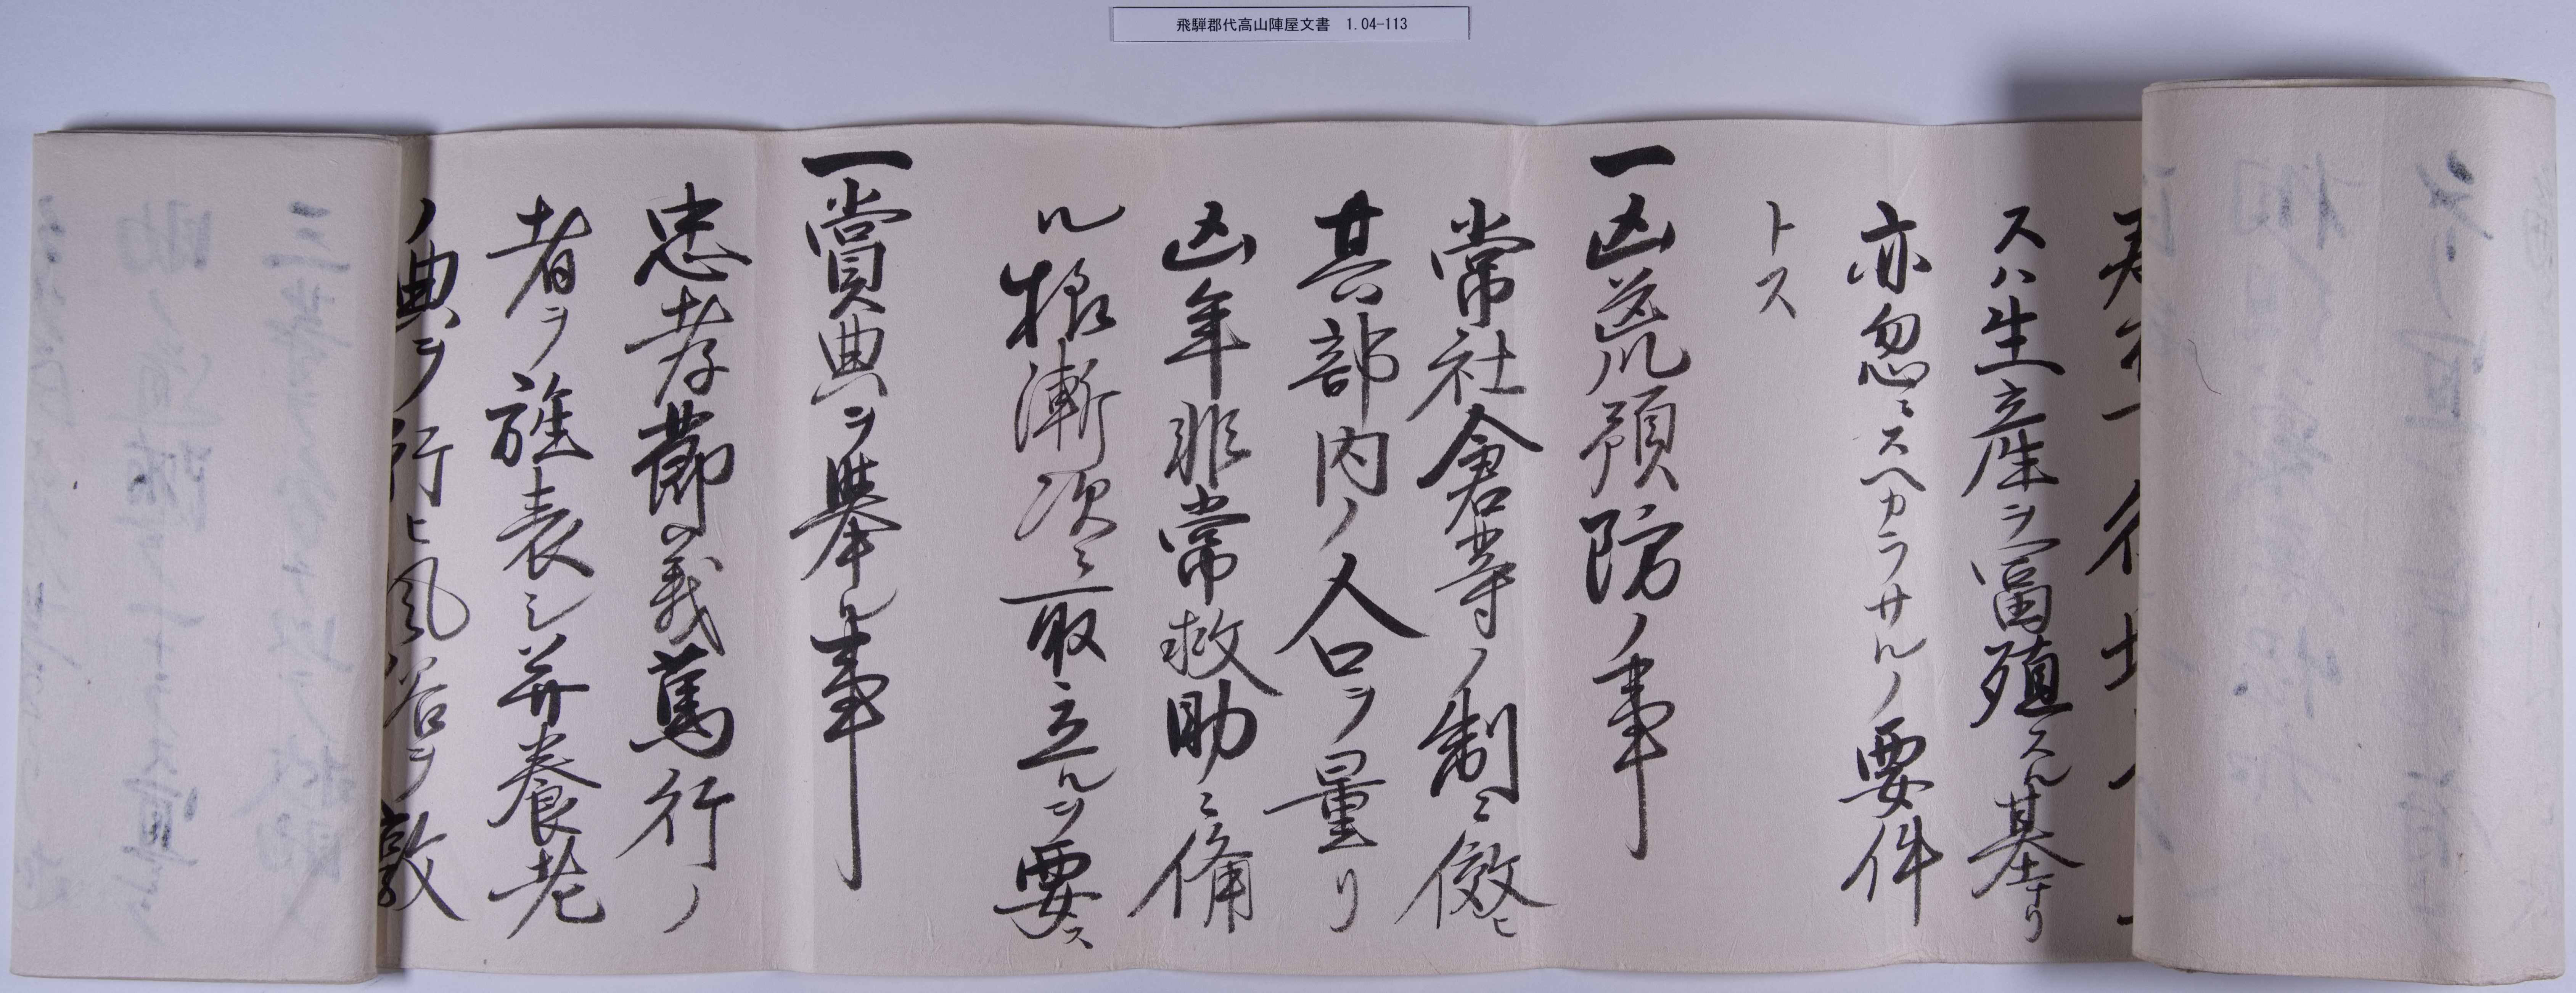 飛騨郡代高山陣屋文書 1.04-113
スハ生立産ヲ冨殖スル基ナリ
亦忽ニスヘカラサルノ要件
トス
一凶荒預防ノ事
常社倉等ノ制ニ倣ヒ
其部内ノ人口ヲ量リ
凶年非常救助ニ備
ル様漸次ニ取立ルヲ要ス
一賞典ヲ挙ル事
忠孝節義篤行ノ
者ヲ旌表シ并養老
ノ典ヲ行ヒ風俗ヲ敦